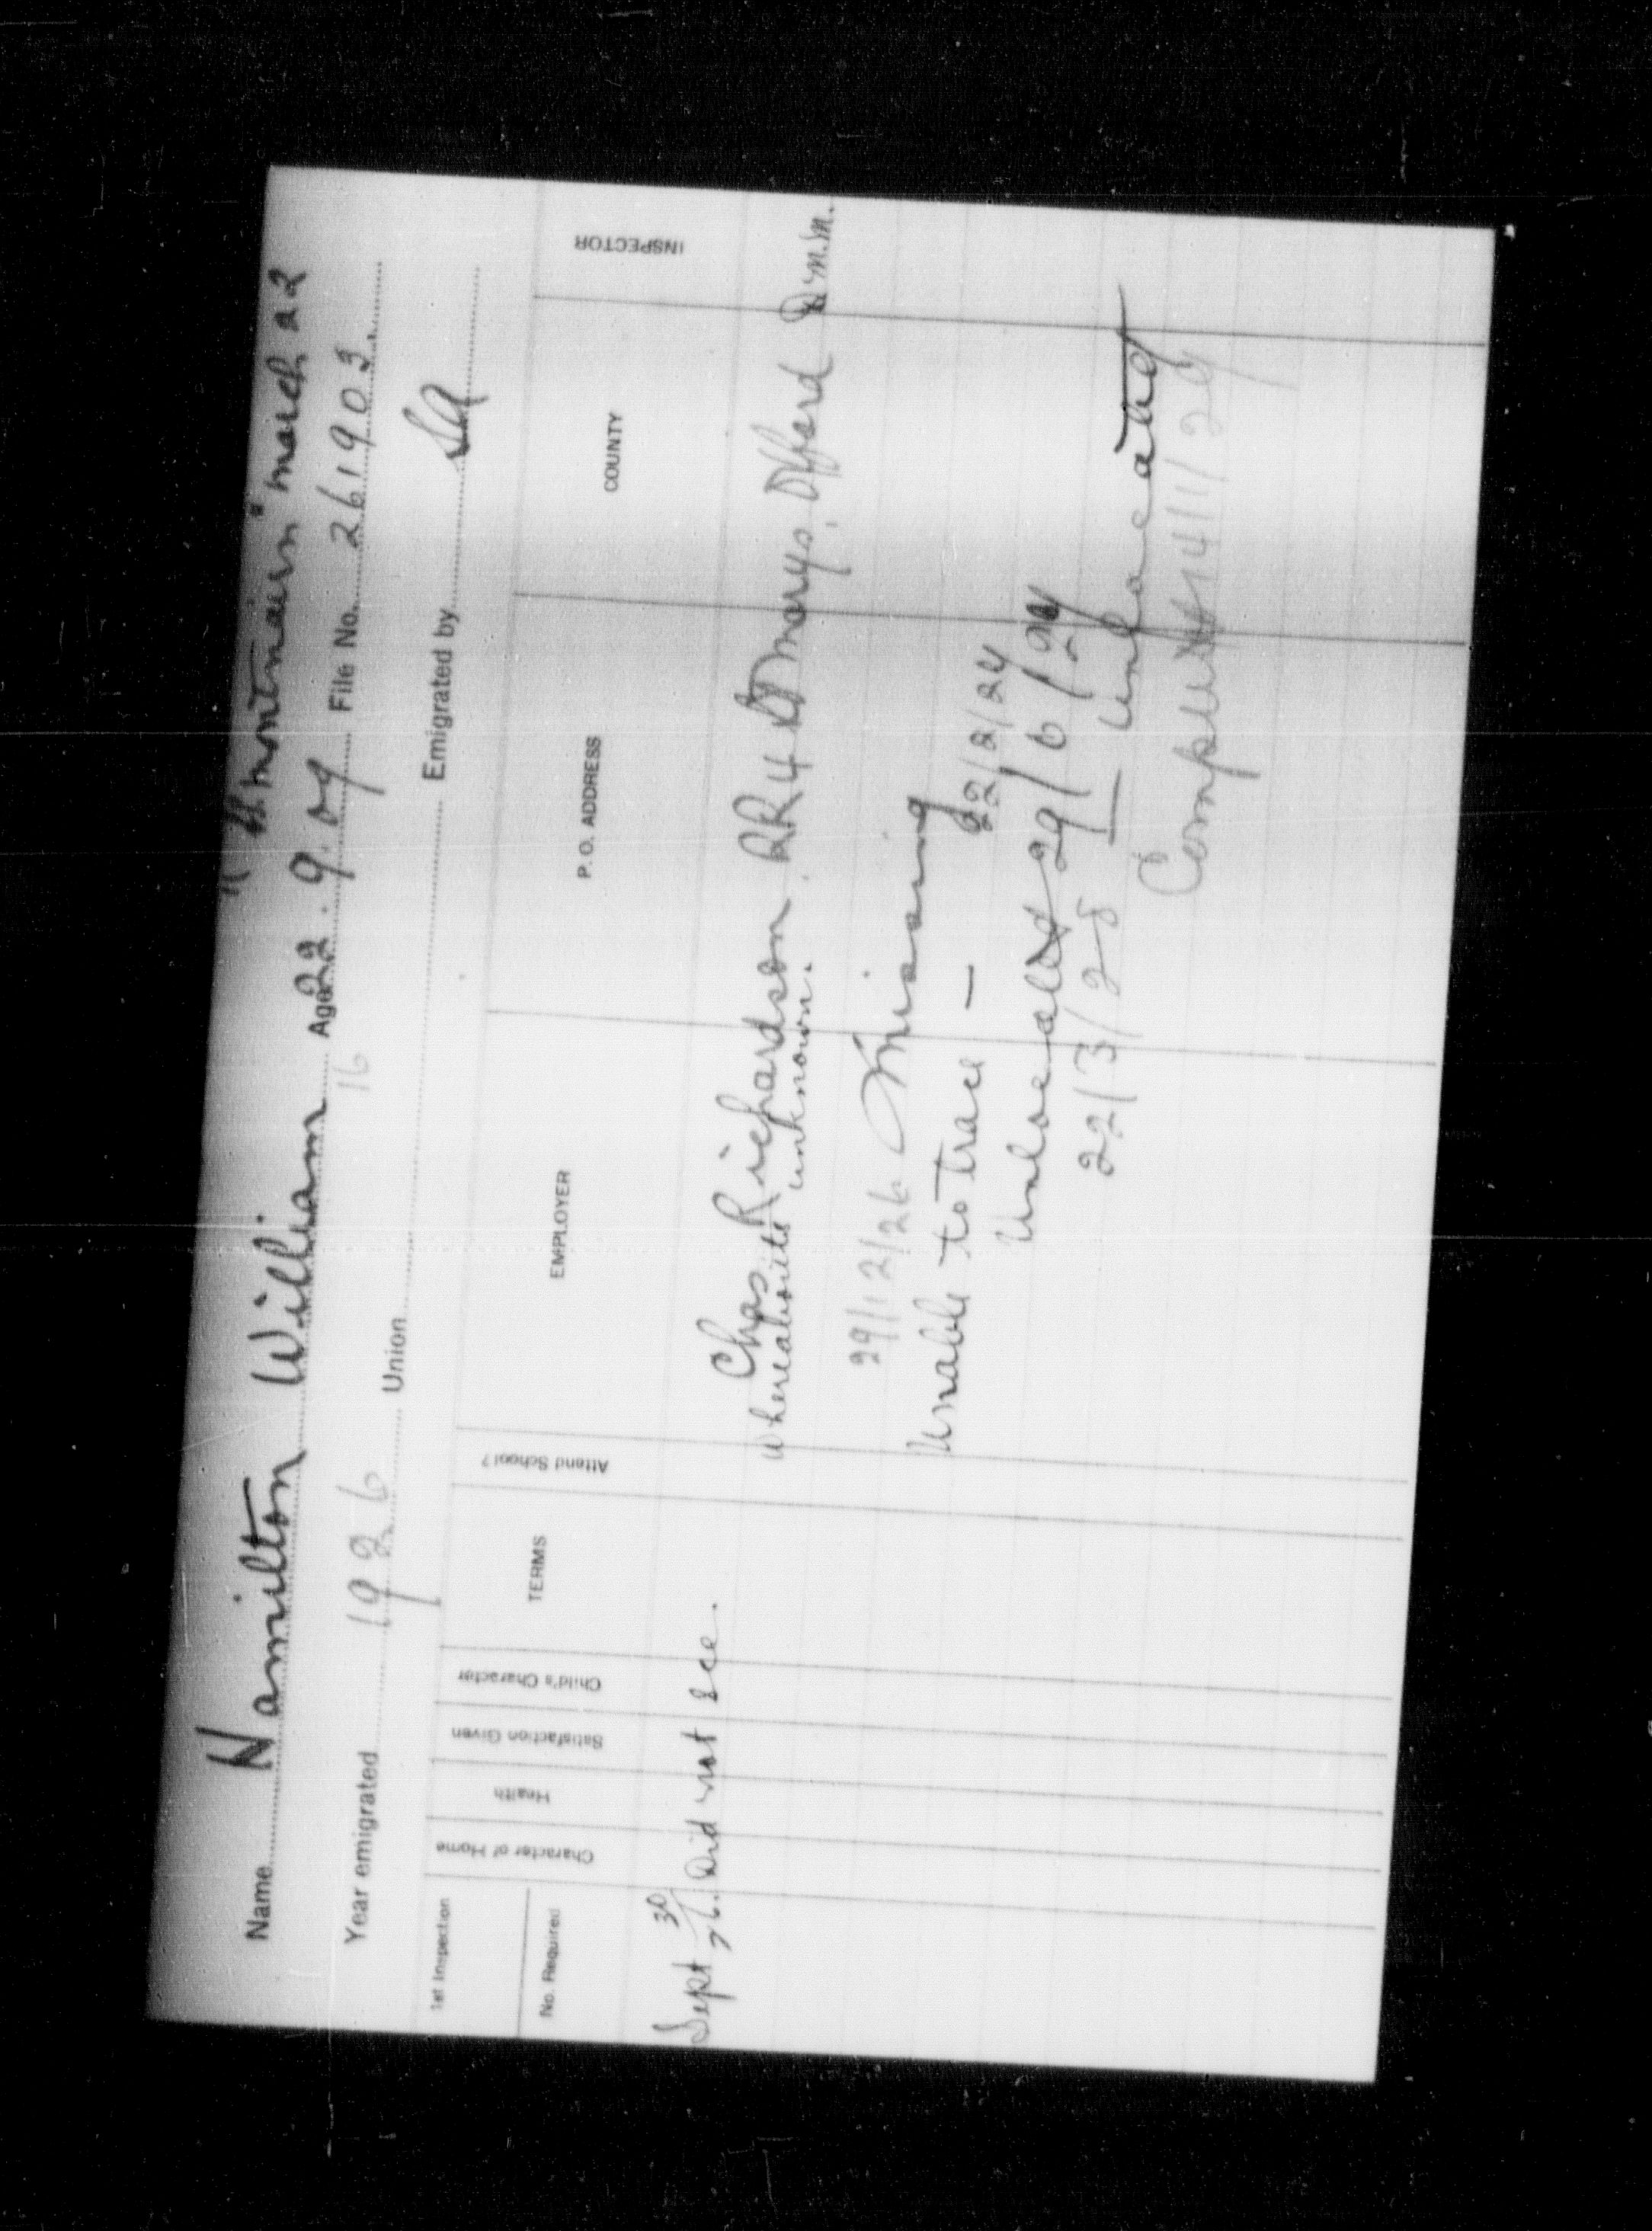 "Montnairn" march 22
Name Hamilton William Age 22. 9. 09 File No. 261903
16
Year emigrated 1926 Union Emigrated by SA
1st Inspection
No. Required
Character of Home
Health
Satisfaction Given
Child's Character
TERMS
Attend School?
EMPLOYER
P. O. ADDRESS
COUNTY
INSPECTOR
Sept 30/26. Did not see.
Chas Richardson. RR 4 St Marys, Oxford D.M.M.
whereabouts unknown.
29/12/26 Missing
Unable to trace — 22/2/27
Unlocated 29/6/27
22/3/28 — Unlocated
Completed 14/1/29